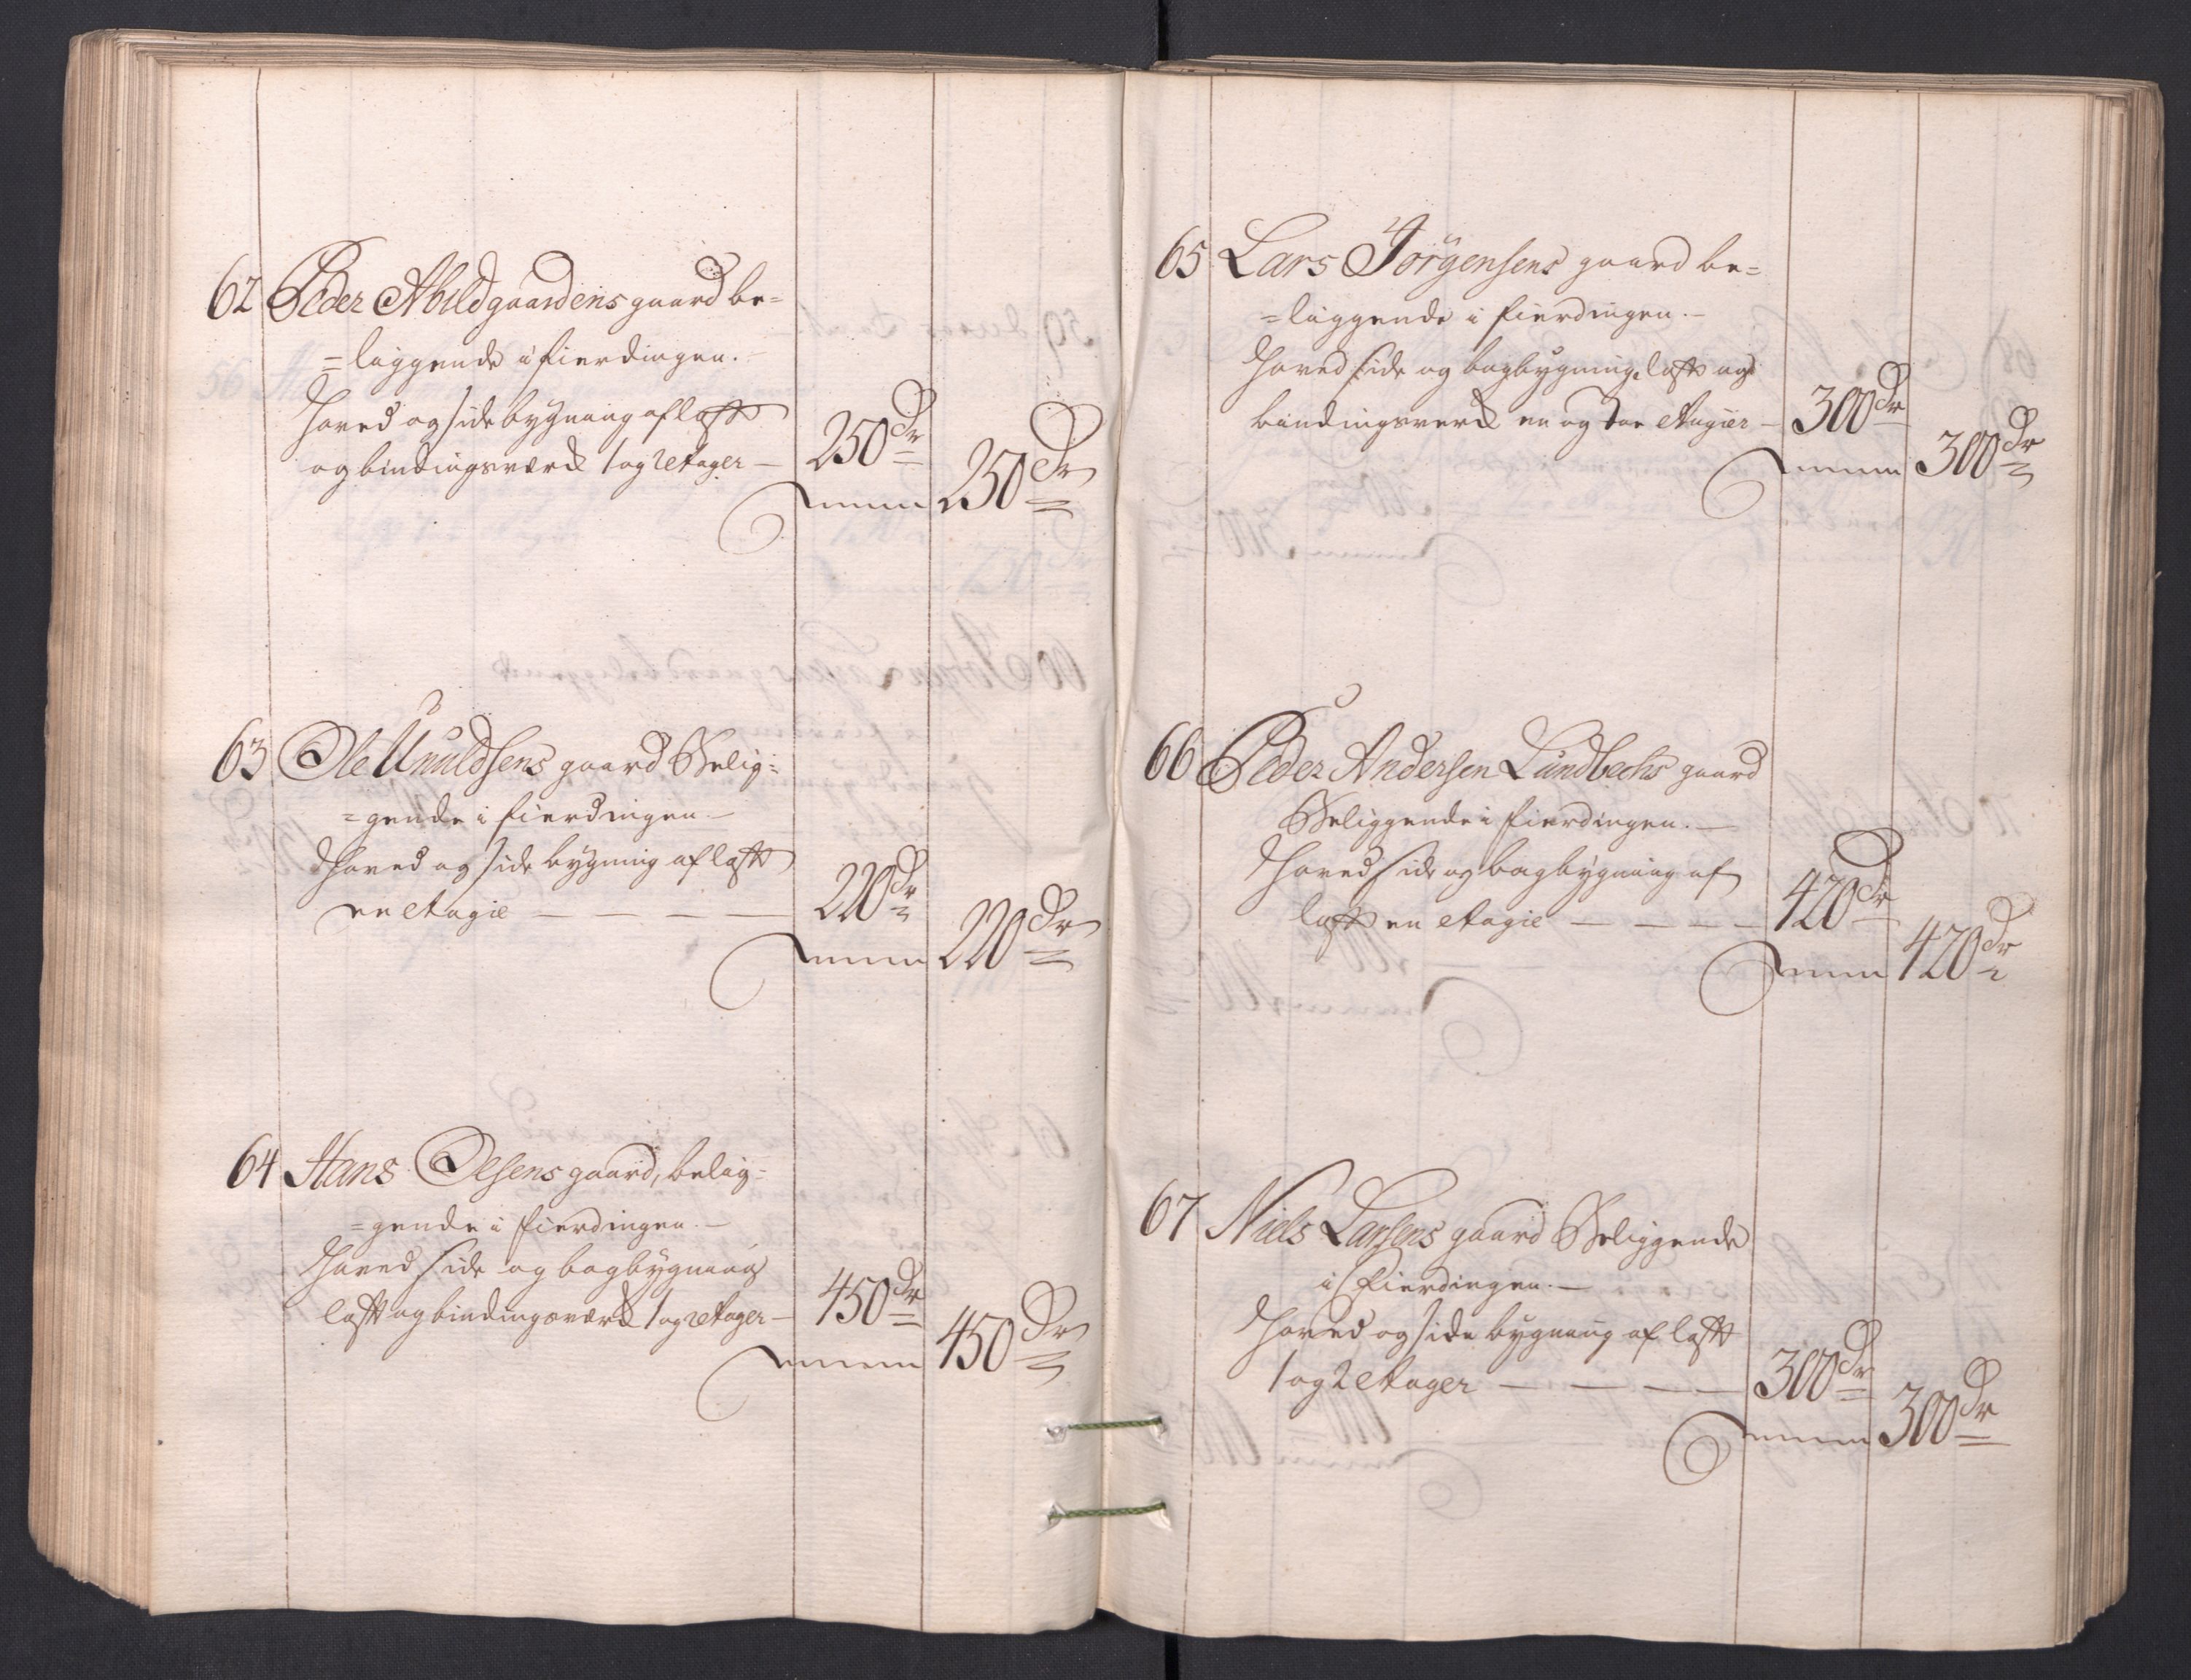 62 Peder Abildgaardens gaard be=
=liggende i fierdingen.
Hoved og side bygning af laft
og bindingsværk 1 og 2 etager — 250 Dr
Summa 250 Dr
63 Ole Knuldsens gaard Belig=
=gende i fierdingen —
Hoved og side bygning af laft
en etagie — — — — 220 Dr
Summa 220 Dr
64 Hans Olsens gaard, belig=
=gende i fierdingen. —
Hoved side og bagbygning
laft og bindingsværk 1 og 2 etager — 450 Dr
Summa 450 Dr
65 Lars Jörgensens gaard be=
=liggende i fierdingen. —
Hoved side og bagbygning, laft og
bindingsverk en og toe etagier — 300 Dr
Summa 300 Dr
66 Peder Andersen Lundbechs gaard
Beliggende i fierdingen. —
Hoved side og bagbygning af
laft en etagie — — — — 420 Dr
Summa 420 Dr
67 Niels Larsens gaard Beliggende
i fierdingen. —
Hoved og side bygning af laft
1 og 2 etager — — — — 300 Dr
Summa 300 Dr